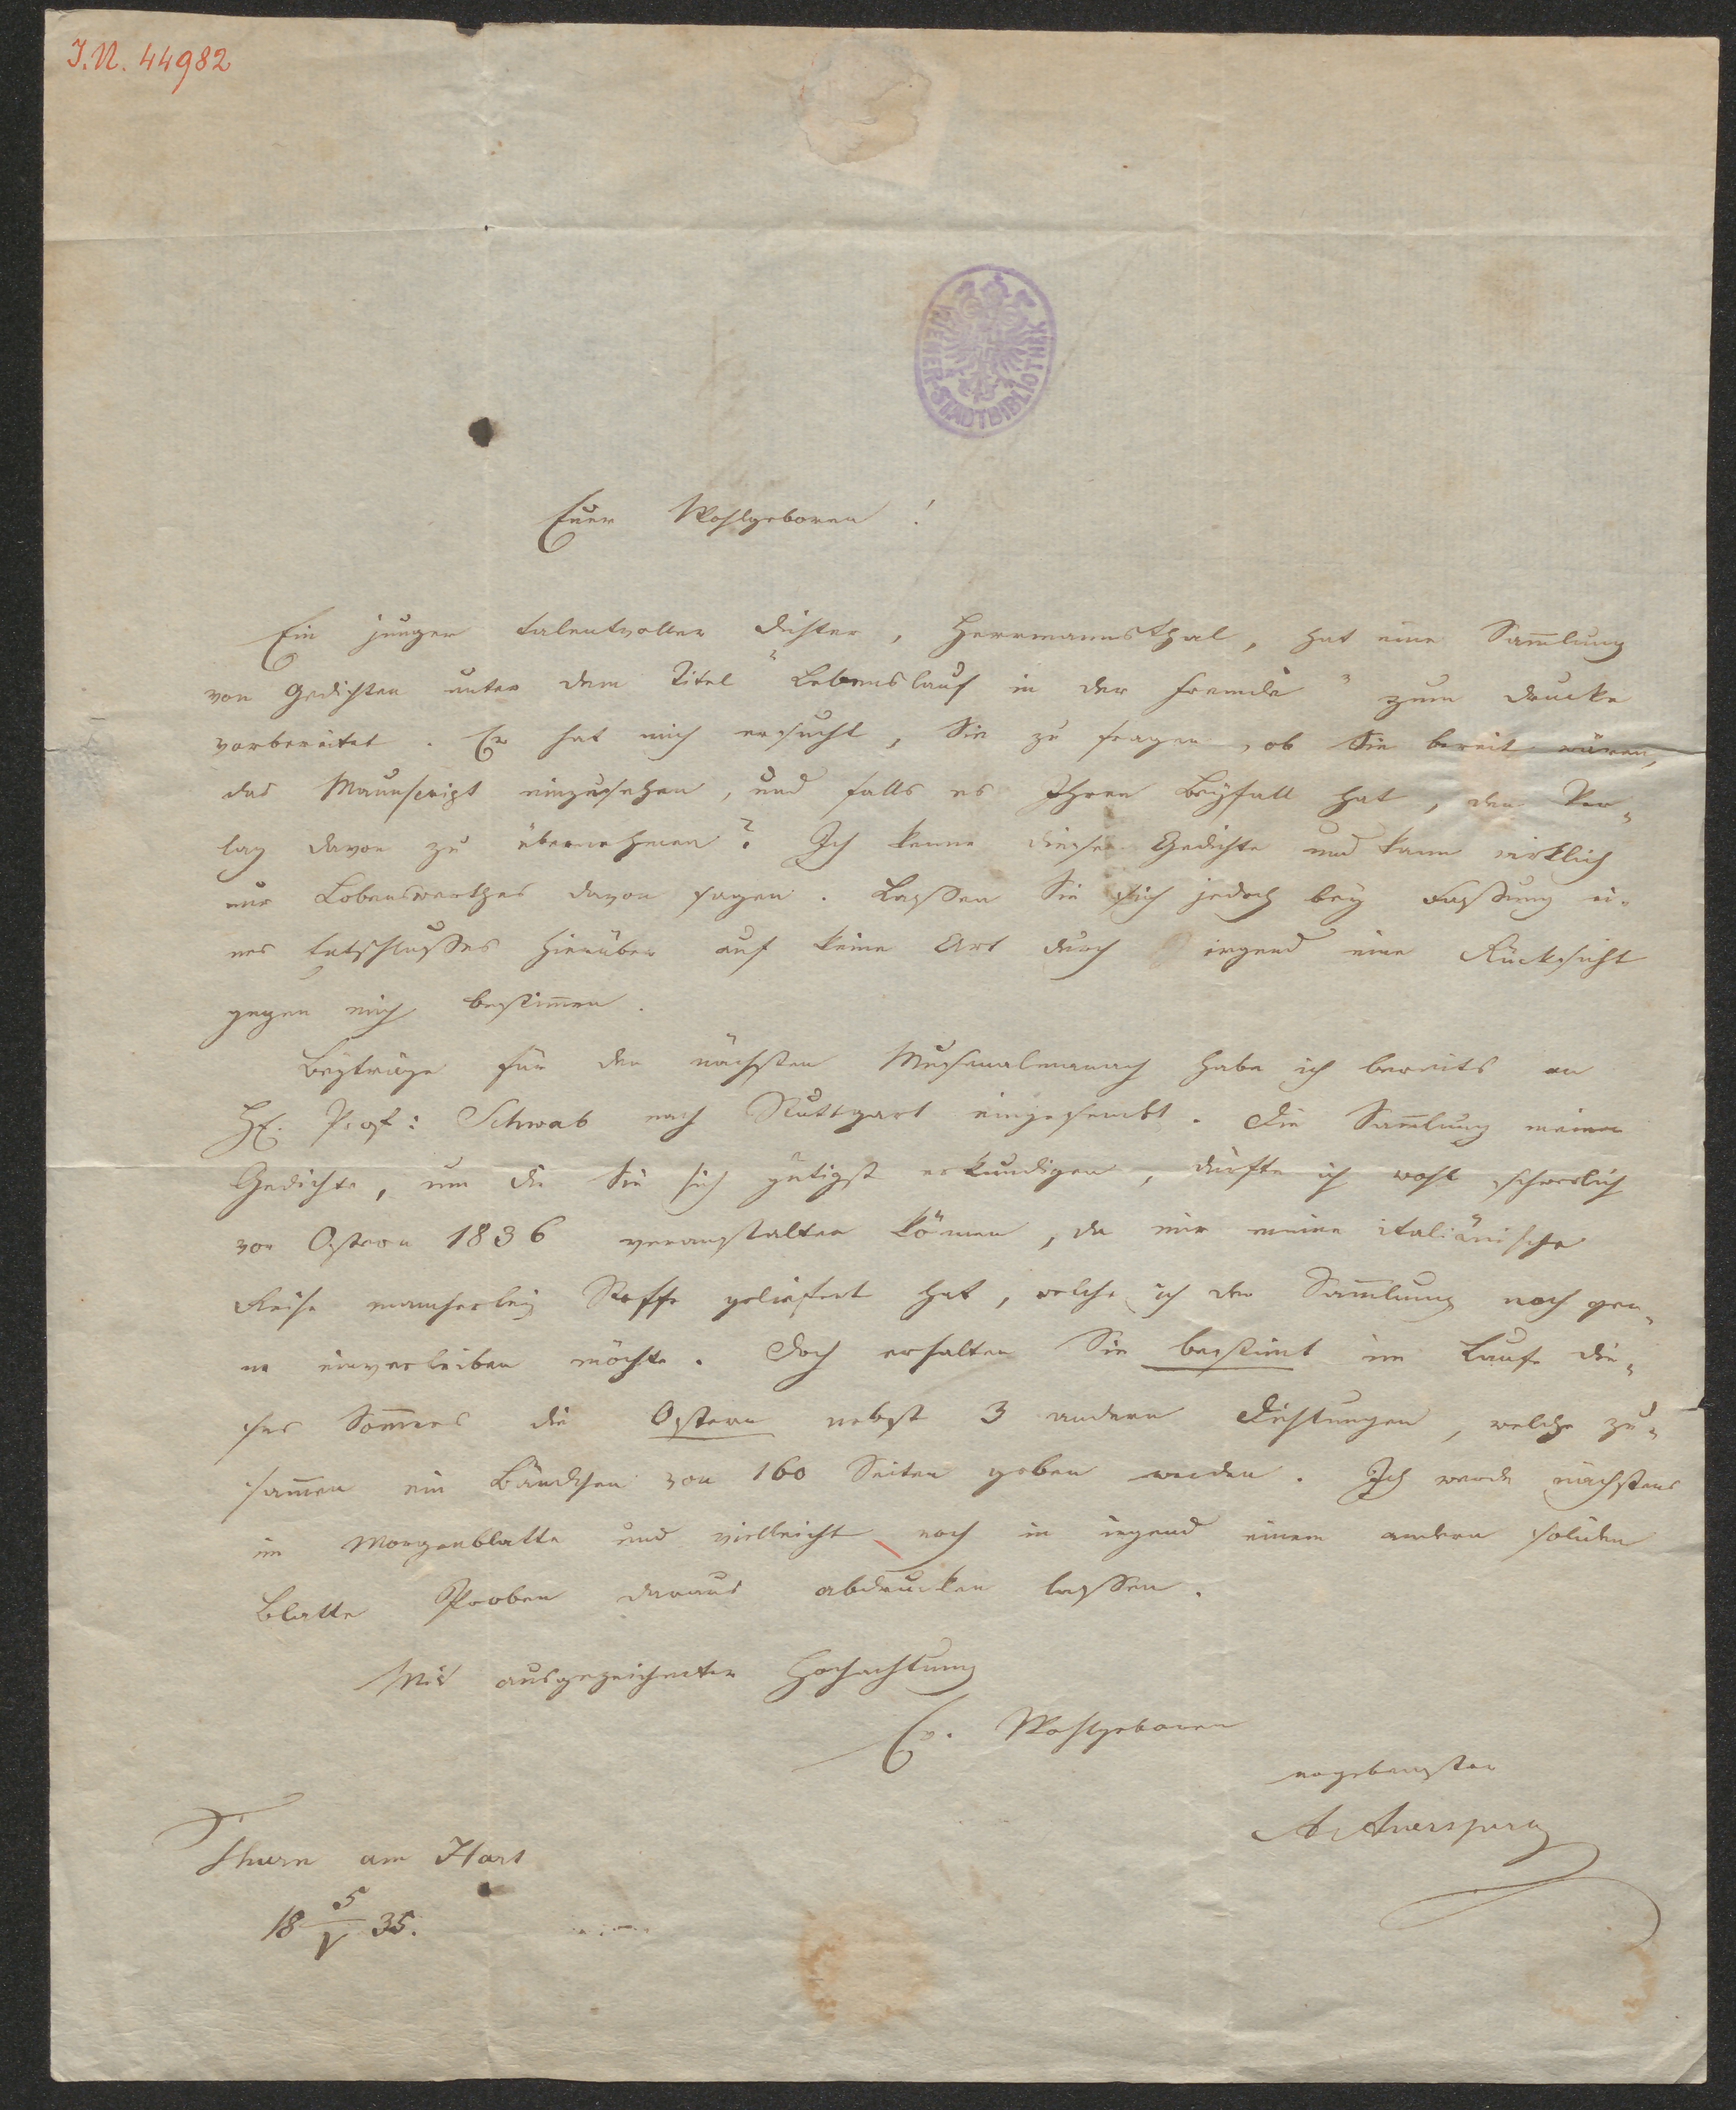 J.N. 44982
WIENER STADTBIBLIOTHEK
Euer Wohlgeboren!
Ein junger talentvoller Dichter, Herrmannsthal, hat eine Sam̄lung
von Gedichten unter dem Titel "Lebenslauf in der Fremde" zum Drucke
vorbereitet. Er hat mich ersucht, Sie zu fragen, ob Sie bereit wären,
das Manuscript einzusehen, und falls es Ihren Beyfall hat, den Ver„
lag davon zu übernehmen? Ich kenne diese Gedichte und kann wirklich
nur Lobenswerthes davon sagen. Lassen Sie sich jedoch bey Fassung ei„
nes Entschlusses hierüber auf keine Art durch irgend eine Rücksicht
gegen mich bestim̄en.
Beyträge für den nächsten Musenalmanach habe ich bereits an
H. Prof: Schwab nach Stuttgart eingesendet. Die Sam̄lung meiner
Gedichte, um die Sie sich gütigst erkundigen, dürfte ich wohl schwerlich
vor Ostern 1836 veranstalten kön̄en, da mir meine italiänische
Reise mancherley Stoffe geliefert hat, welche ich der Sam̄lung noch ger„
ne einverleiben möchte. Doch erhalten Sie bestim̄t im Laufe die„
ses Som̄ers die Ostern nebst 3 andern Dichtungen, welche zu„
sam̄en ein Bändchen von 160 Seiten geben werden. Ich werde nächstens
im Morgenblatte und vielleicht noch in irgend einem andern soliden
Blatte Proben daraus abdrucken lassen.
Mit ausgezeichneter Hochachtung
Er. Wohlgeboren
ergebenster
A Auersperg
Thurn am Hart
18 5/V 35.